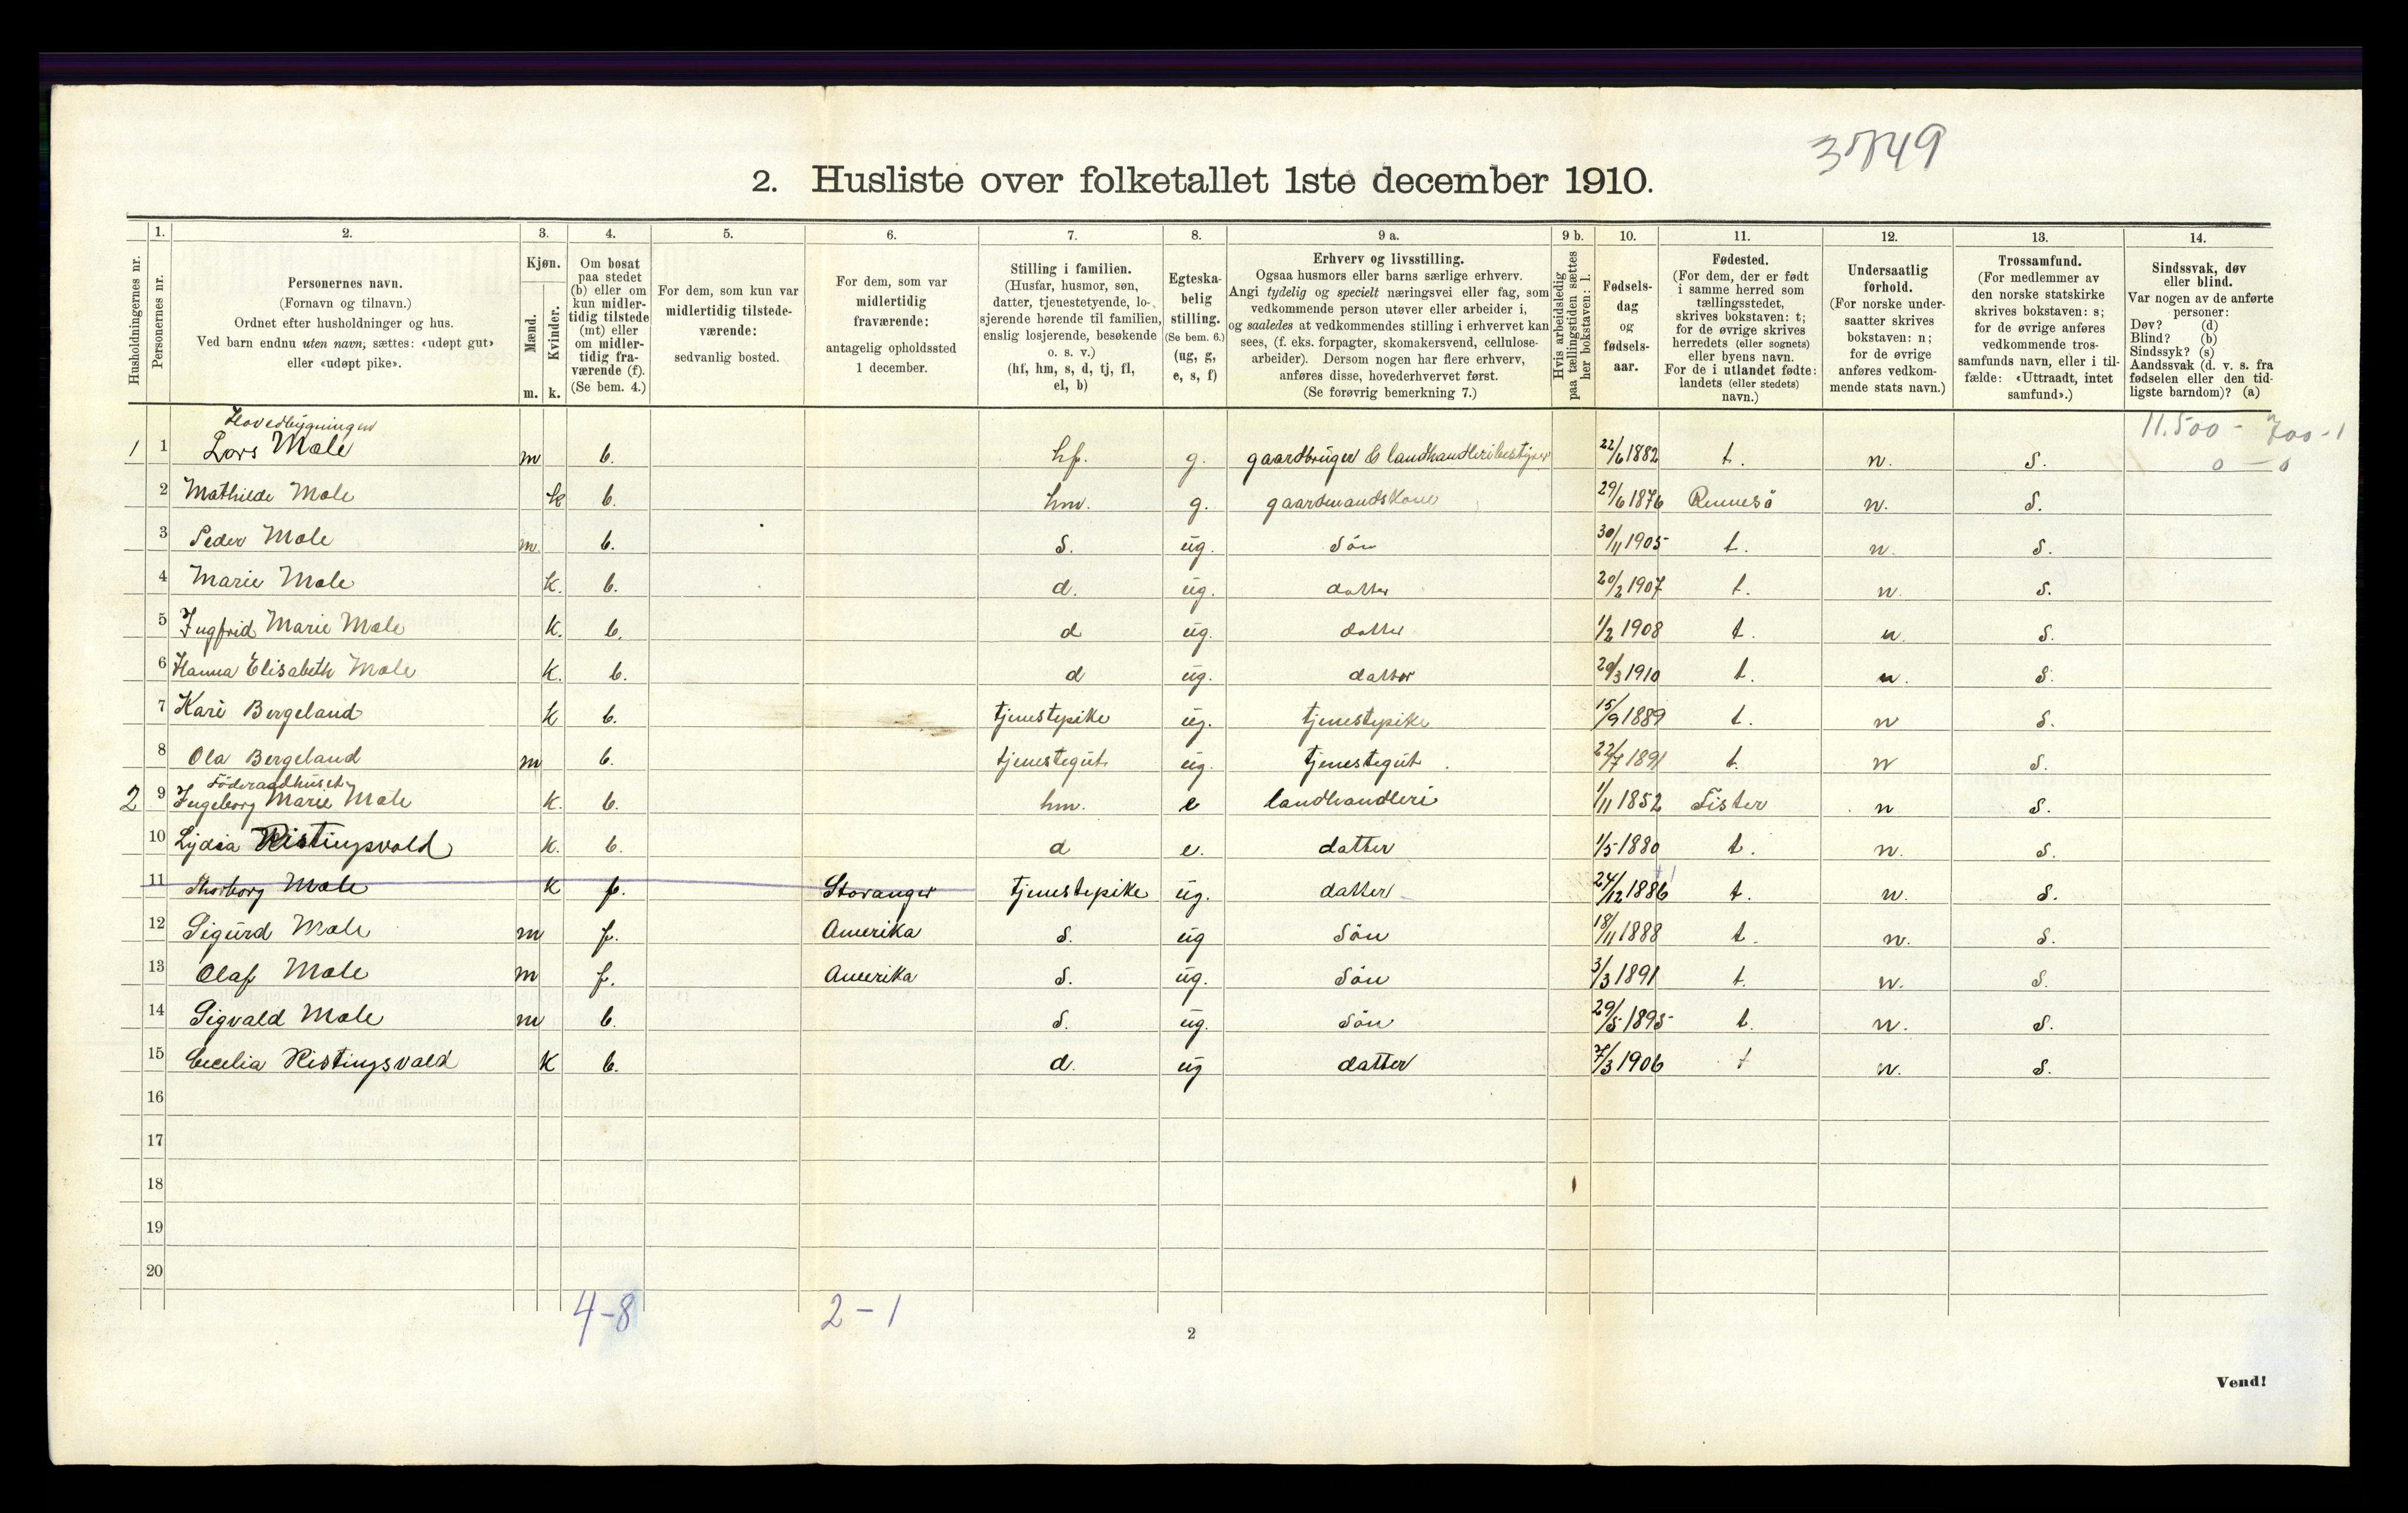 2. Husliste over folketallet 1ste december 1910.
1. 2. 3. 4. 5. 6. 7. 8. 9 a. 9 b. 10. 11. 12. 13. 14.
Husholdningernes nr.
Personernes nr.
Personernes navn.
(Fornavn og tilnavn.)
Ordnet efter husholdninger og hus.
Ved barn endnu uten navn, sættes: «udøpt gut»
eller «udøpt pike».
Kjøn.
Mænd.
Kvinder.
m. k.
Om bosat
paa stedet
(b) eller om
kun midler-
tidig tilstede
(mt) eller
om midler-
tidig fra-
værende (f).
(Se bem. 4.)
For dem, som kun var
midlertidig tilstede-
værende:
sedvanlig bosted.
For dem, som var
midlertidig
fraværende:
antagelig opholdssted
1 december.
Stilling i familien.
(Husfar, husmor, søn,
datter, tjenestetyende, lo-
sjerende hørende til familien,
enslig losjerende, besøkende
o. s. v.)
(hf, hm, s, d, tj, fl,
el, b)
Egteska-
belig
stilling.
(Se bem. 6.)
(ug, g,
e, s, f)
Erhverv og livsstilling.
Ogsaa husmors eller barns særlige erhverv.
Angi tydelig og specielt næringsvei eller fag, som
vedkommende person utøver eller arbeider i,
og saaledes at vedkommendes stilling i erhvervet kan
sees, (f. eks. forpagter, skomakersvend, cellulose-
arbeider). Dersom nogen har flere erhverv,
anføres disse, hovederhvervet først.
(Se forøvrig bemerkning 7.)
Hvis arbeidsledig
paa tællingstiden sættes
her bokstaven: l.
Fødsels-
dag
og
fødsels-
aar.
Fødested.
(For dem, der er født
i samme herred som
tællingsstedet,
skrives bokstaven: t;
for de øvrige skrives
herredets (eller sognets)
eller byens navn.
For de i utlandet fødte:
landets (eller stedets)
navn.)
Undersaatlig
forhold.
(For norske under-
saatter skrives
bokstaven: n;
for de øvrige
anføres vedkom-
mende stats navn.)
Trossamfund.
(For medlemmer av
den norske statskirke
skrives bokstaven: s;
for de øvrige anføres
vedkommende tros-
samfunds navn, eller i til-
fælde: «Uttraadt, intet
samfund».)
Sindssvak, døv
eller blind.
Var nogen av de anførte
personer:
Døv? (d)
Blind? (b)
Sindssyk? (s)
Aandssvak (d. v. s. fra
fødselen eller den tid-
ligste barndom)? (a)
Hovedbygningen
11.500 - 700-1
0 - 0
1 1 Lars Mæle m b. hf. g. gaardbruger & landhandleribestyrer 22/6 1882 t. n. s.
2 Mathilde Mæle k b. hm. g. gaardmandskone 29/6 1876 Rennesö n. s.
3 Peder Mæle m. b. s. ug. sön 30/11 1905 t. n. s.
4 Marie Mæle k. b. d. ug. datter 20/2 1907 t. n. s.
5 Ingfrid Marie Mæle k. b. d ug. datter 1/2 1908 t. n. s.
6 Hanna Elisabeth Mæle k. b. d ug. datter 20/3 1910 t. n. s.
7 Kari Bergeland k b. tjenestepike ug. tjenestepike 15/9 1889 t. n s.
8 Ola Bergeland m b. tjenestegut ug. tjenestegut 22/7 1891 t. n s.
Föderaadhuset
2 9 Ingeborg Marie Mæle k. b. hm. e landhandleri 1/11 1852 Fister n s.
10 Lydia Ristingsvold k. b. d e. datter 1/5 1880 t. n. s.
11 Thorborg Mæle k f. Stavanger tjenestepike ug. datter 24/12 1886 t. n. s.
12 Sigurd Mæle m f. Amerika s. ug sön 18/11 1888 t. n. s.
13 Olaf Mæle m f. Amerika s. ug. sön 3/3 1891 t. n. s.
14 Sigvald Mæle m b. s. ug. sön 29/5 1895 t. n. s.
15 Cecelia Ristingsvold k b. d. ug datter 7/3 1906 t n. s.
16
17
18
19
20
4-8 2-1
2
Vend!